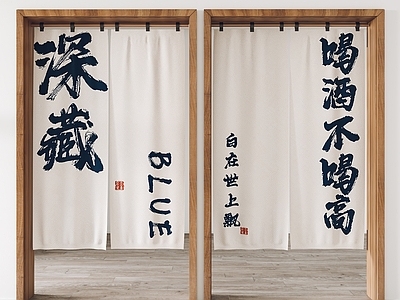 深藏
BLUE
喝酒不喝高
自在世上飘